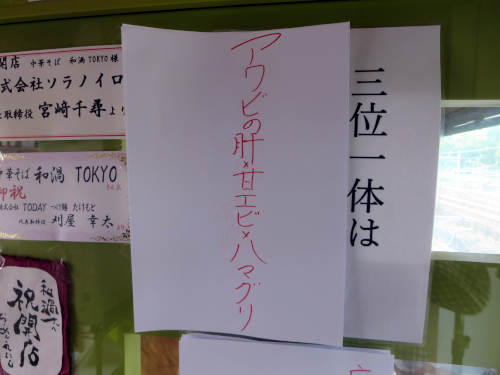 三位一体は
アワビの肝×甘エビ×ハマグリ
開店 中華そば 和渦 TOKYO 様
式会社ソラノイロ
取締役 宮﨑千尋より
中華そば 和渦 TOKYO さん江
御祝
株式会社 TODAY つけ麺 たけもと
代表取締役 刈屋 幸太 より
和渦さん
祝開店